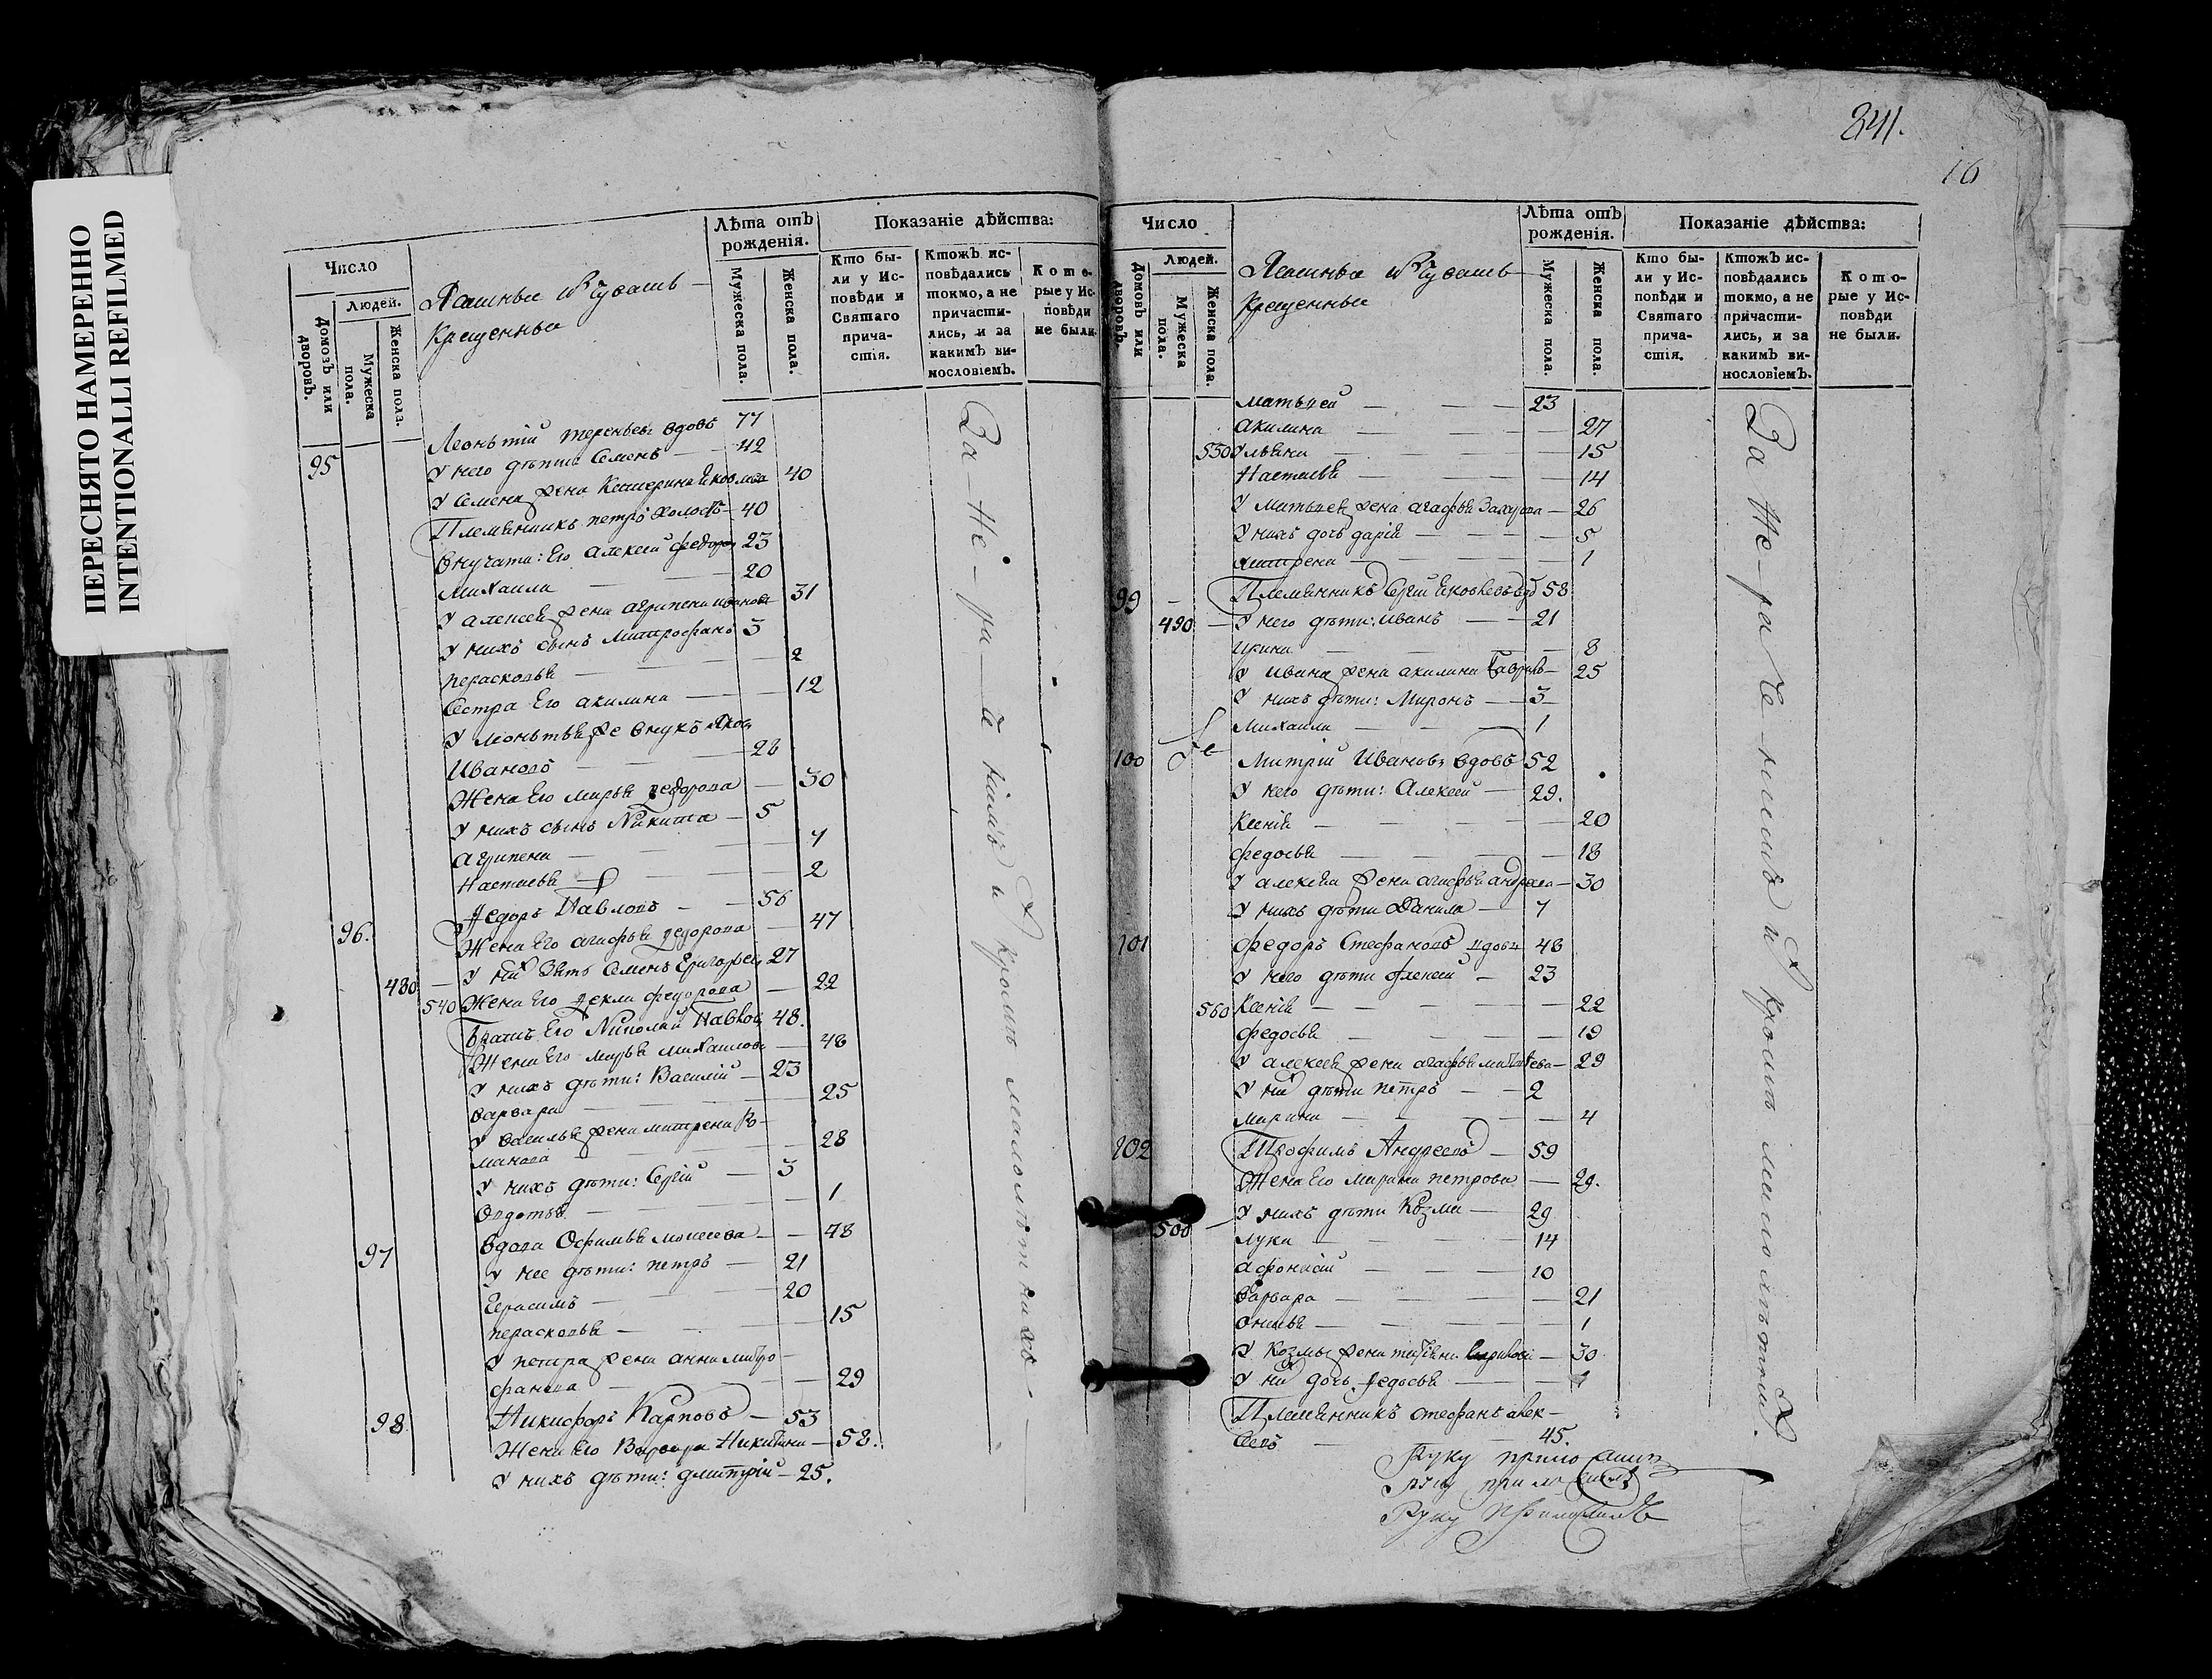 ПЕРЕСНЯТО НАМЕРЕННО
INTENTIONALLI REFILMED
Число
Людей.
Домовъ или дворовъ.
Мужеска пола.
Женска пола.
Ясашныя из Чувашъ
Крещенныя
Лѣта отъ рожденія.
Мужеска пола.
Женска пола.
Показаніе дѣйства:
Кто были у Исповѣди и Святаго причастія.
Ктожъ исповѣдались токмо, а не причастились, и за какимъ винословіемъ.
Которые у Исповѣди не были.
95 Леонътій Терентьевъ вдовъ 77
У него дѣти: Семенъ — 42
У Семена жена Катерина Яковлева 40
Племянникъ петръ холостъ — 40
Внучата: Его алексей федоровъ 23
михаила — 20
У алексея жена агрипена иванова 31
У нихъ сынъ митрофанъ 3
перасковья — 2
Сестра Его акилина — 12
У леонтья же внукъ Яковъ
Ивановъ — 28
Жена Его марья федорова — 30
У нихъ сынъ Никита — 5
агрипена — 4
настасья — 2
96. Федоръ Павловъ — 56
Жена Его агафья федорова — 47
480 У ни зять Семенъ Григорьевъ 27
540 Жена Его фекла федорова — 22
Братъ Его Николай Павловъ 48.
Жена Его марья михаилова — 48
У нихъ дѣти: Василій — 23
варвара — 25
У василья жена матрена Ро-
манова — 28
У нихъ дѣти: Сергій — 3
Овдотья — 1
97 вдова Офимья моисеева — 48
У нее дѣти: петръ — 21
Герасимъ — 20
перасковья — 15
У петра жена анна митро-
фанова — 29
98 Никифоръ Карповъ — 53
Жена Его Варвара Никитина — 58.
У нихъ дѣти: дмитрій — 25.
За не-ра че ніемъ и кромѣ малолѣтнихъ
841.
16
Число
Людей.
Домовъ или дворовъ.
Мужеска пола.
Женска пола.
Ясашныя из Чувашъ
Крещенныя
Лѣта отъ рожденія.
Мужеска пола.
Женска пола.
Показаніе дѣйства:
Кто были у Исповѣди и Святаго причастія.
Ктожъ исповѣдались токмо, а не причастились, и за какимъ винословіемъ.
Которые у Исповѣди не были.
матьвей — 23
акилина — 27
550 Ульяна — 15
настасья — 14
У матьвея жена агафья Захарова — 26
У нихъ дочь дарія — 5
матрена — 1
99 Племянникъ Сергій Яковлевъ вд 58
490 У него дѣти: иванъ — 21
ирина — 8
У ивана жена акилина Гаврилова — 25
У нихъ дѣти: Миронъ — 3
михаила — 1
100 Митрій Ивановъ вдовъ 52
У него дѣти: Алексей — 29.
Ксенія — 20
федосья — 18
У алексея жена агафья андреева — 30
У нихъ дѣти Данила — 7
101 федоръ Стефановъ вдовъ 48
У него дѣти алексей — 23
560 Ксенія — 22
федосья — 19
У алексея жена агафья матвеева — 29
У ни дѣти петръ — 2
марина — 4
102 Трофимъ Андреевъ — 59
Жена Его марина петрова — 29.
500 У нихъ дѣти Козма — 29
лука — 14
афонасій — 10
варвара — 21
онисья — 1
У Козмы жена татіяна — 30
У ни дочь федосья — 1
Племянникъ стефанъ алек-
сеевъ — 45.
За не-ра че-ніемъ и кромѣ малолѣтнихъ.
Руку приложилъ
руку приложилъ
Руку приложилъ